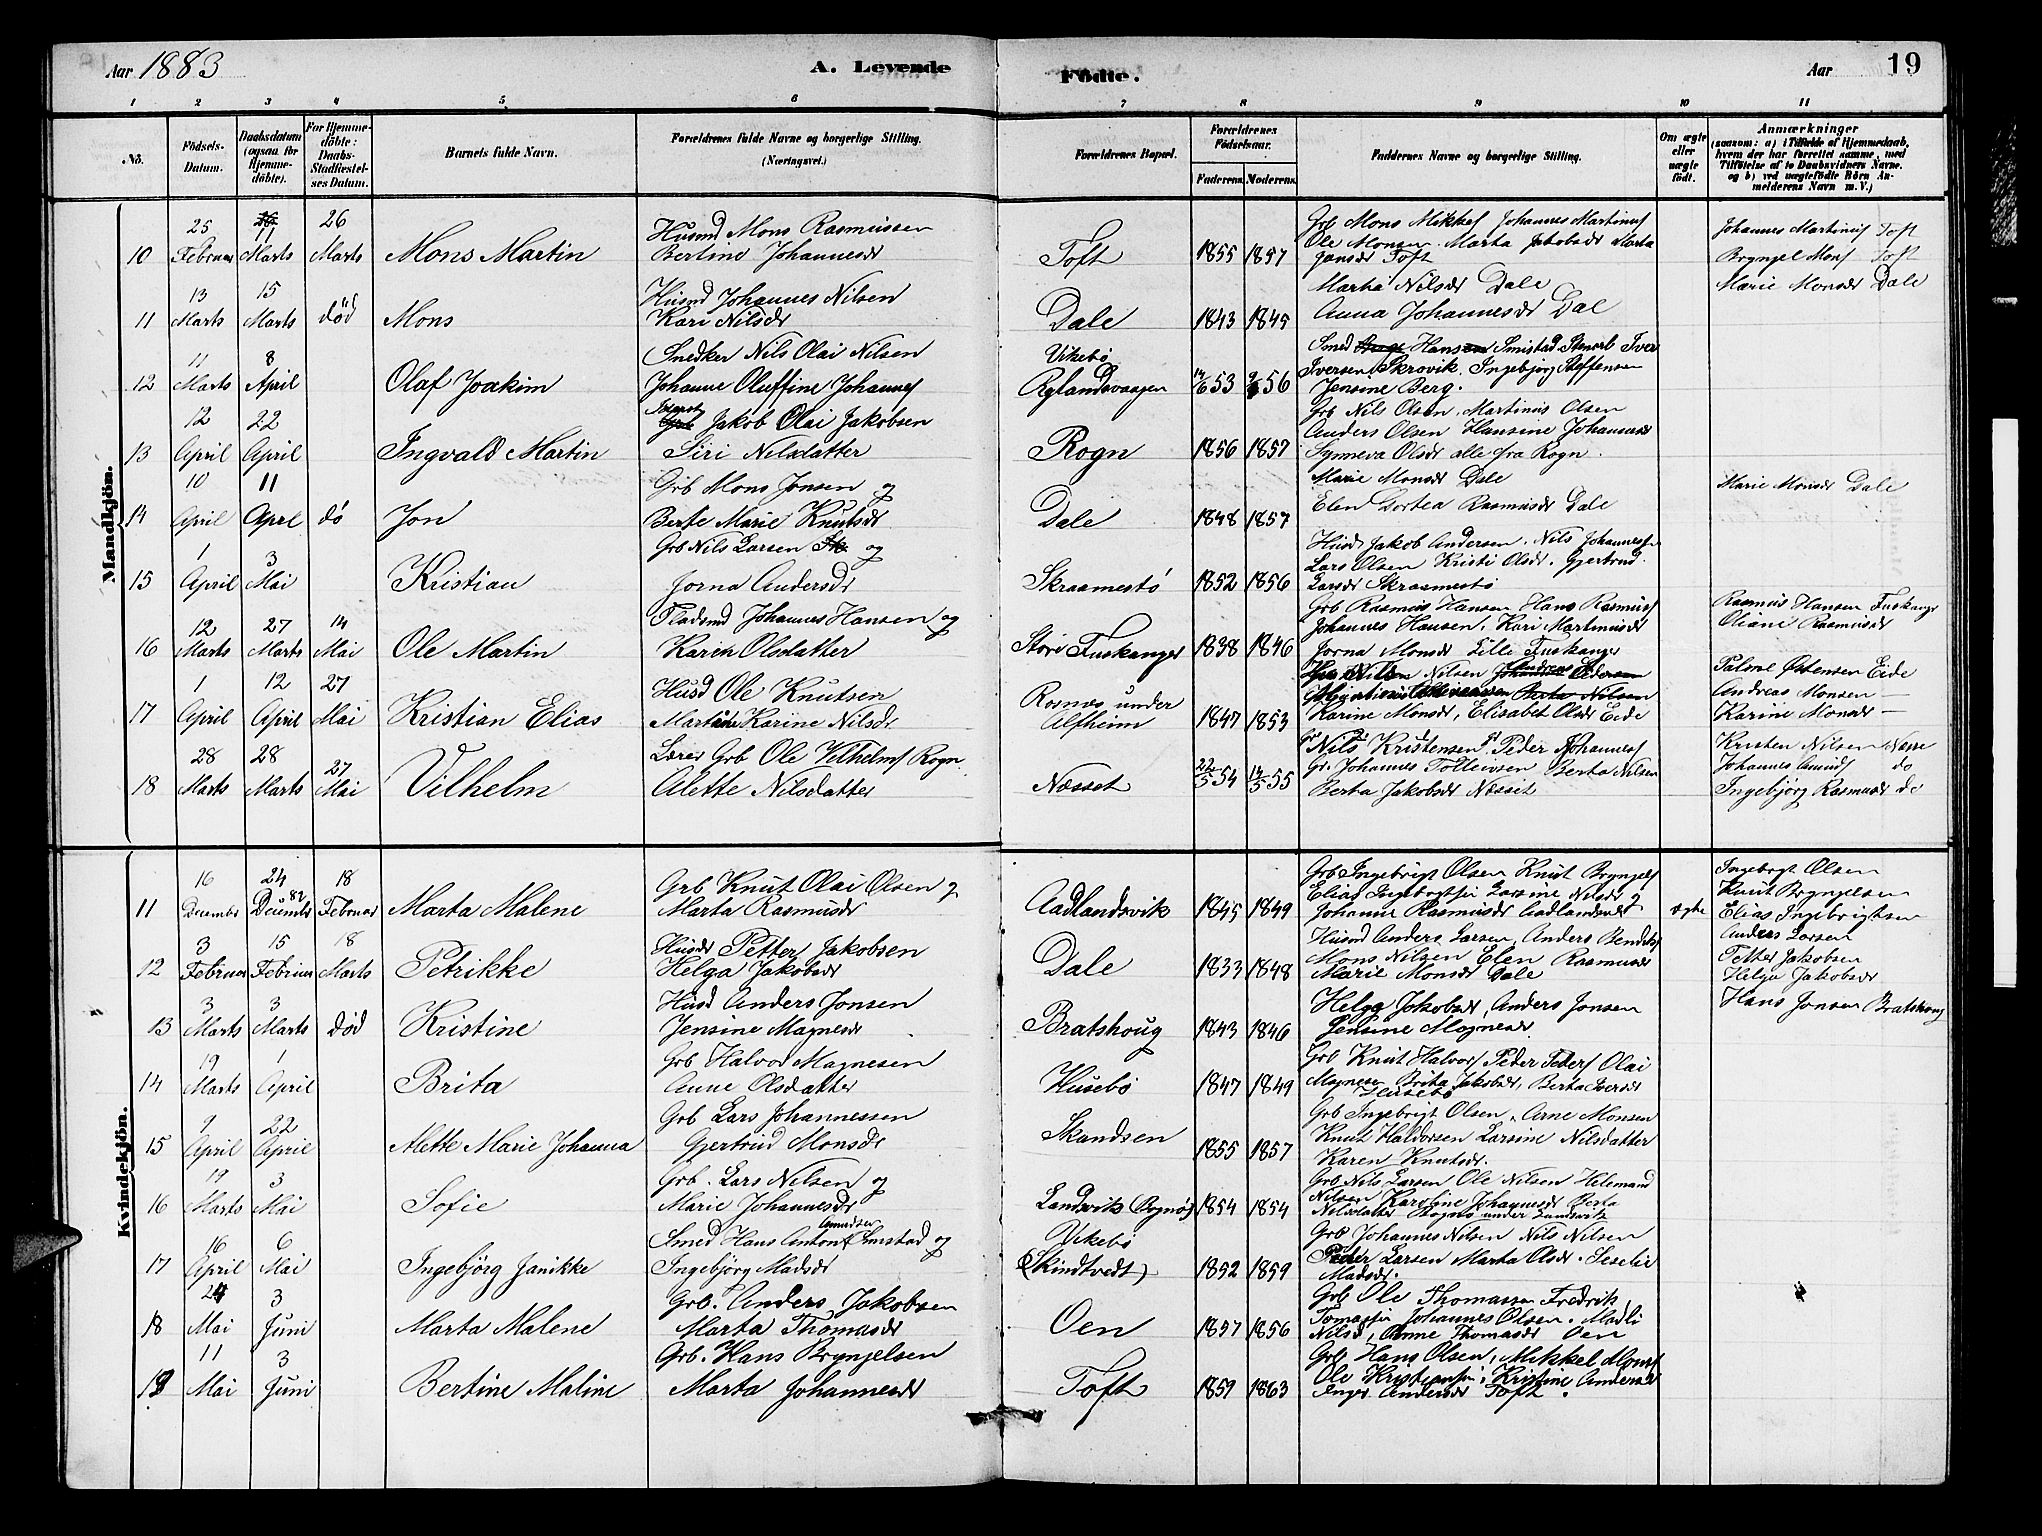 Aar 1883
A. Levende
Fødte.
Aar
19
1 2 3 4 5 6 7 8 9 10 11
No.
Fødsels-
Datum.
Daabsdatum
(ogsaa for
Hjemme-
döbte).
For Hjemme-
döbte:
Daabs-
Stadfæstel-
ses Datum.
Barnets fulde Navn.
Forældrenes fulde Navne og borgerlige Stilling.
(Næringsvei.)
Forældrenes Bopæl.
Forældrenes
Födselsaar.
Faderens. Moderens.
Faddernes Navne og borgerlige Stilling.
Om ægte
eller
uægte
født.
Anmærkninger
(saasom: a) i Tilfælde af Hjemmedaab,
hvem der har forrettet samme, med
Tilföielse af to Daabsvidners Navne.
og b) ved uægtefödte Börn An-
melderens Navn m. V.)
Mandkjön.
25 11 26
10 Februar Marts Marts Mons Martin
Husmd Mons Rasmussen
Bertine Johannesdr
Toft 1855 1857
Grb Mons Mikkels Johannes Martinus
Ole Monsen. Marta Jakobsdr Marta
Jonsdr Toft
Johannes Martinus Toft
Brynjel Mons Toft
Marie Monsdr Dale
13 15
11 Marts Marts död Mons
Husmd Johannes Nilsen
Kari Nilsdr
Dale 1843 1845
Marta Nilsdr Dale
Anna Johannesdr Dal
11 8
12 Marts April Olaf Joakim
Snedker Nils Olai Nilsen
Johanne Oluffine Johannes
Vikebö
Rylandsvaagen 53 56
Smed Hansen Smistad Iver
Iversen Skrovik. Ingebjörg Steffensen
Jensine Berg.
12 22
13 April April Ingvald Martin
Jakob Olai Jakobsen
Siri Nilsdatter
Rogn 1856 1857
Grb Nils Olsen, Martinus Olsen
Anders Olsen Hansine Johannesdr
Synneva Olsdr alle fra Rogn.
10 11
14 April Aprl dö Jon
Grb Mons Jonsen og
Berte Marie Knutsdr
Dale 1848 1857
Marie Monsdr Dale
Elen Dortea Rasmusdr Dale
Marie Monsdr Dale
1 3
15 April Mai Kristian
Grb Nils Larsen og
Jorna Andersdr
Skraamestö 1852 1856
Husd Jakob Andersen. Nils Johannessen
Lars Olsen Kristi Olsdr. Gjertrud
Larsdr Skraamestö
12 27 14
16 Marts Marts Mai Ole Martin
Pladsmd Johannes Hansen og
Karen Olsdatter
Store Fuskanger 1838 1846
Grb Rasmus Hansen Hans Rasmus
Johannes Hansen. Kari Martinusdr
Jorna Monsdr Lille Fuskanger
Rasmus Hansen Fuskanger
Oliane Rasmusdr
1 12 27
17 April April Mai Kristian Elias
Husd Ole Knutsen
Martine Karine Nilsdr
Rosnes under
Alfheim 1847 1853
Karine Monsdr, Elisabet Olsdr Eide
Palove Östensen Eide
Andreas Monsen —
Karine Monsdr —
28 28 27
18 Marts Marts Mai Vilhelm
Lærer Grb Ole Vilhelms Rogn
Alette Nilsdatter
Næsset 22/5 54 14/5 55
Nils Kristensen Peder Johannes
Gr. Johannes Tolleivsen Berta Nilsen
Berta Jakobsdr Næsset
Kristen Nilsen Næsse
Johannes do
Ingebjörg Rasmusdr do
Kvindekjön.
16 24 18
11 December December 82 Februar Marta Malene
Grb Knut Olai Olsen og
Marta Rasmusdr
Aadlandsvik 1845 1849
Grb Ingebrigt Olsen Knut Brynjels
Elias Ingebrigtsen Larsine Nilsdr og
Johanne Rasmusdr Aadlandsvik
ægte
Ingebrigt Olsen
Knut Brynjelsen
Elias Ingebrigtsen
3 15 18
12 Februar Februar Marts Petrikke
Husdr Petter Jakobsen
Helga Jakobsdr
Dale 1833 1848
Husmd Anders Larsen, Anders Bendiks
Mons Nilsen Elen Rasmusdr
Marie Monsdr Dale
Anders Larsen
Petter Jakobsen
Helga Jakobsdr
3 3
13 Marts Marts död Kristine
Husd Anders Jonsen
Jensine Magnesdr
Bratshoug 1843 1846
Helga Jakobsdr, Anders Jonsen
Jensine Magnesdr
Hans Jonsen Bratshoug
19 1
14 Marts April Brita
Grb Halvor Magnesen
Anne Olsdatter
Husebö 1847 1849
Grb Knut Halvors Peder Peders Olai
Magnesen Brita Jakobsdr, Berta Iversdr
Husebö
9 22
15 April April Alette Marie Johanna
Grb Lars Johannessen
Gjertrud Monsdr
Skandsen 1855 1857
Grb Ingebrigt Olsen, Arne Monsen
Knut Haldorsen Larsine Nilsdatter
Karen Knutsdr.
19 3
16 Marts Mai Sofie
Grb. Lars Nilsen og
Marie Johannesdr
Landsvik (Rognö) 1854 1854
Grb Nils Larsen Ole Nilsen Helemand
Nilsen Karoline Johannesdr Berta
Nilsdatter Rognö under Landsvik
16 6
17 April Mai Ingebjörg Janikke
Smed Hans Anton Amundsen Smistad og
Ingebjörg Madsdr
Vikebö
(Skindtvedt) 1852 1859
Grb Johannes Nilsen Nils Nilsen
Peder Larsen Marta Olsdr. Seselie
Madsdr.
24 3
18 Mai Juni Marta Malene
Grb. Anders Jakobsen
Marta Thomasdr
Oen 1857 1856
Grb Ole Thomassen Fredrik
Tomassen Johannes Olsen. Madli
Nilsd, Anne Thomasdr Oen
11 3
19 Mai Juni Bertine Maline
Grb. Hans Brynjelsen
Marta Johannesdr
Toft 1859 1863
Grb Hans Olsen, Mikkel Mons
Ole Kristiansen, Kristine Andersdr
Inger Andersdr Toft.